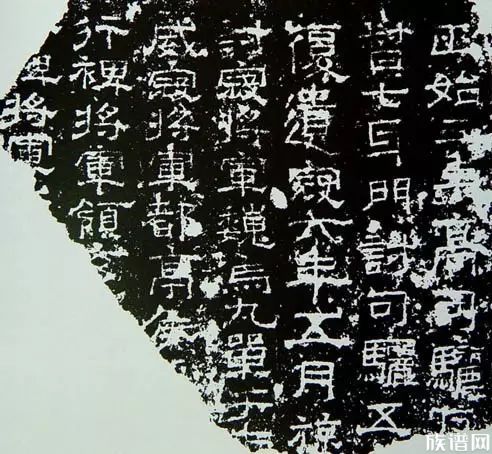 正始三年高句驪
督七牙門討句驪五
復遺寇六年五月旋
討寇將軍魏烏丸單于
威寇將軍都亭侯
行裨將軍領
裨將軍
族谱网